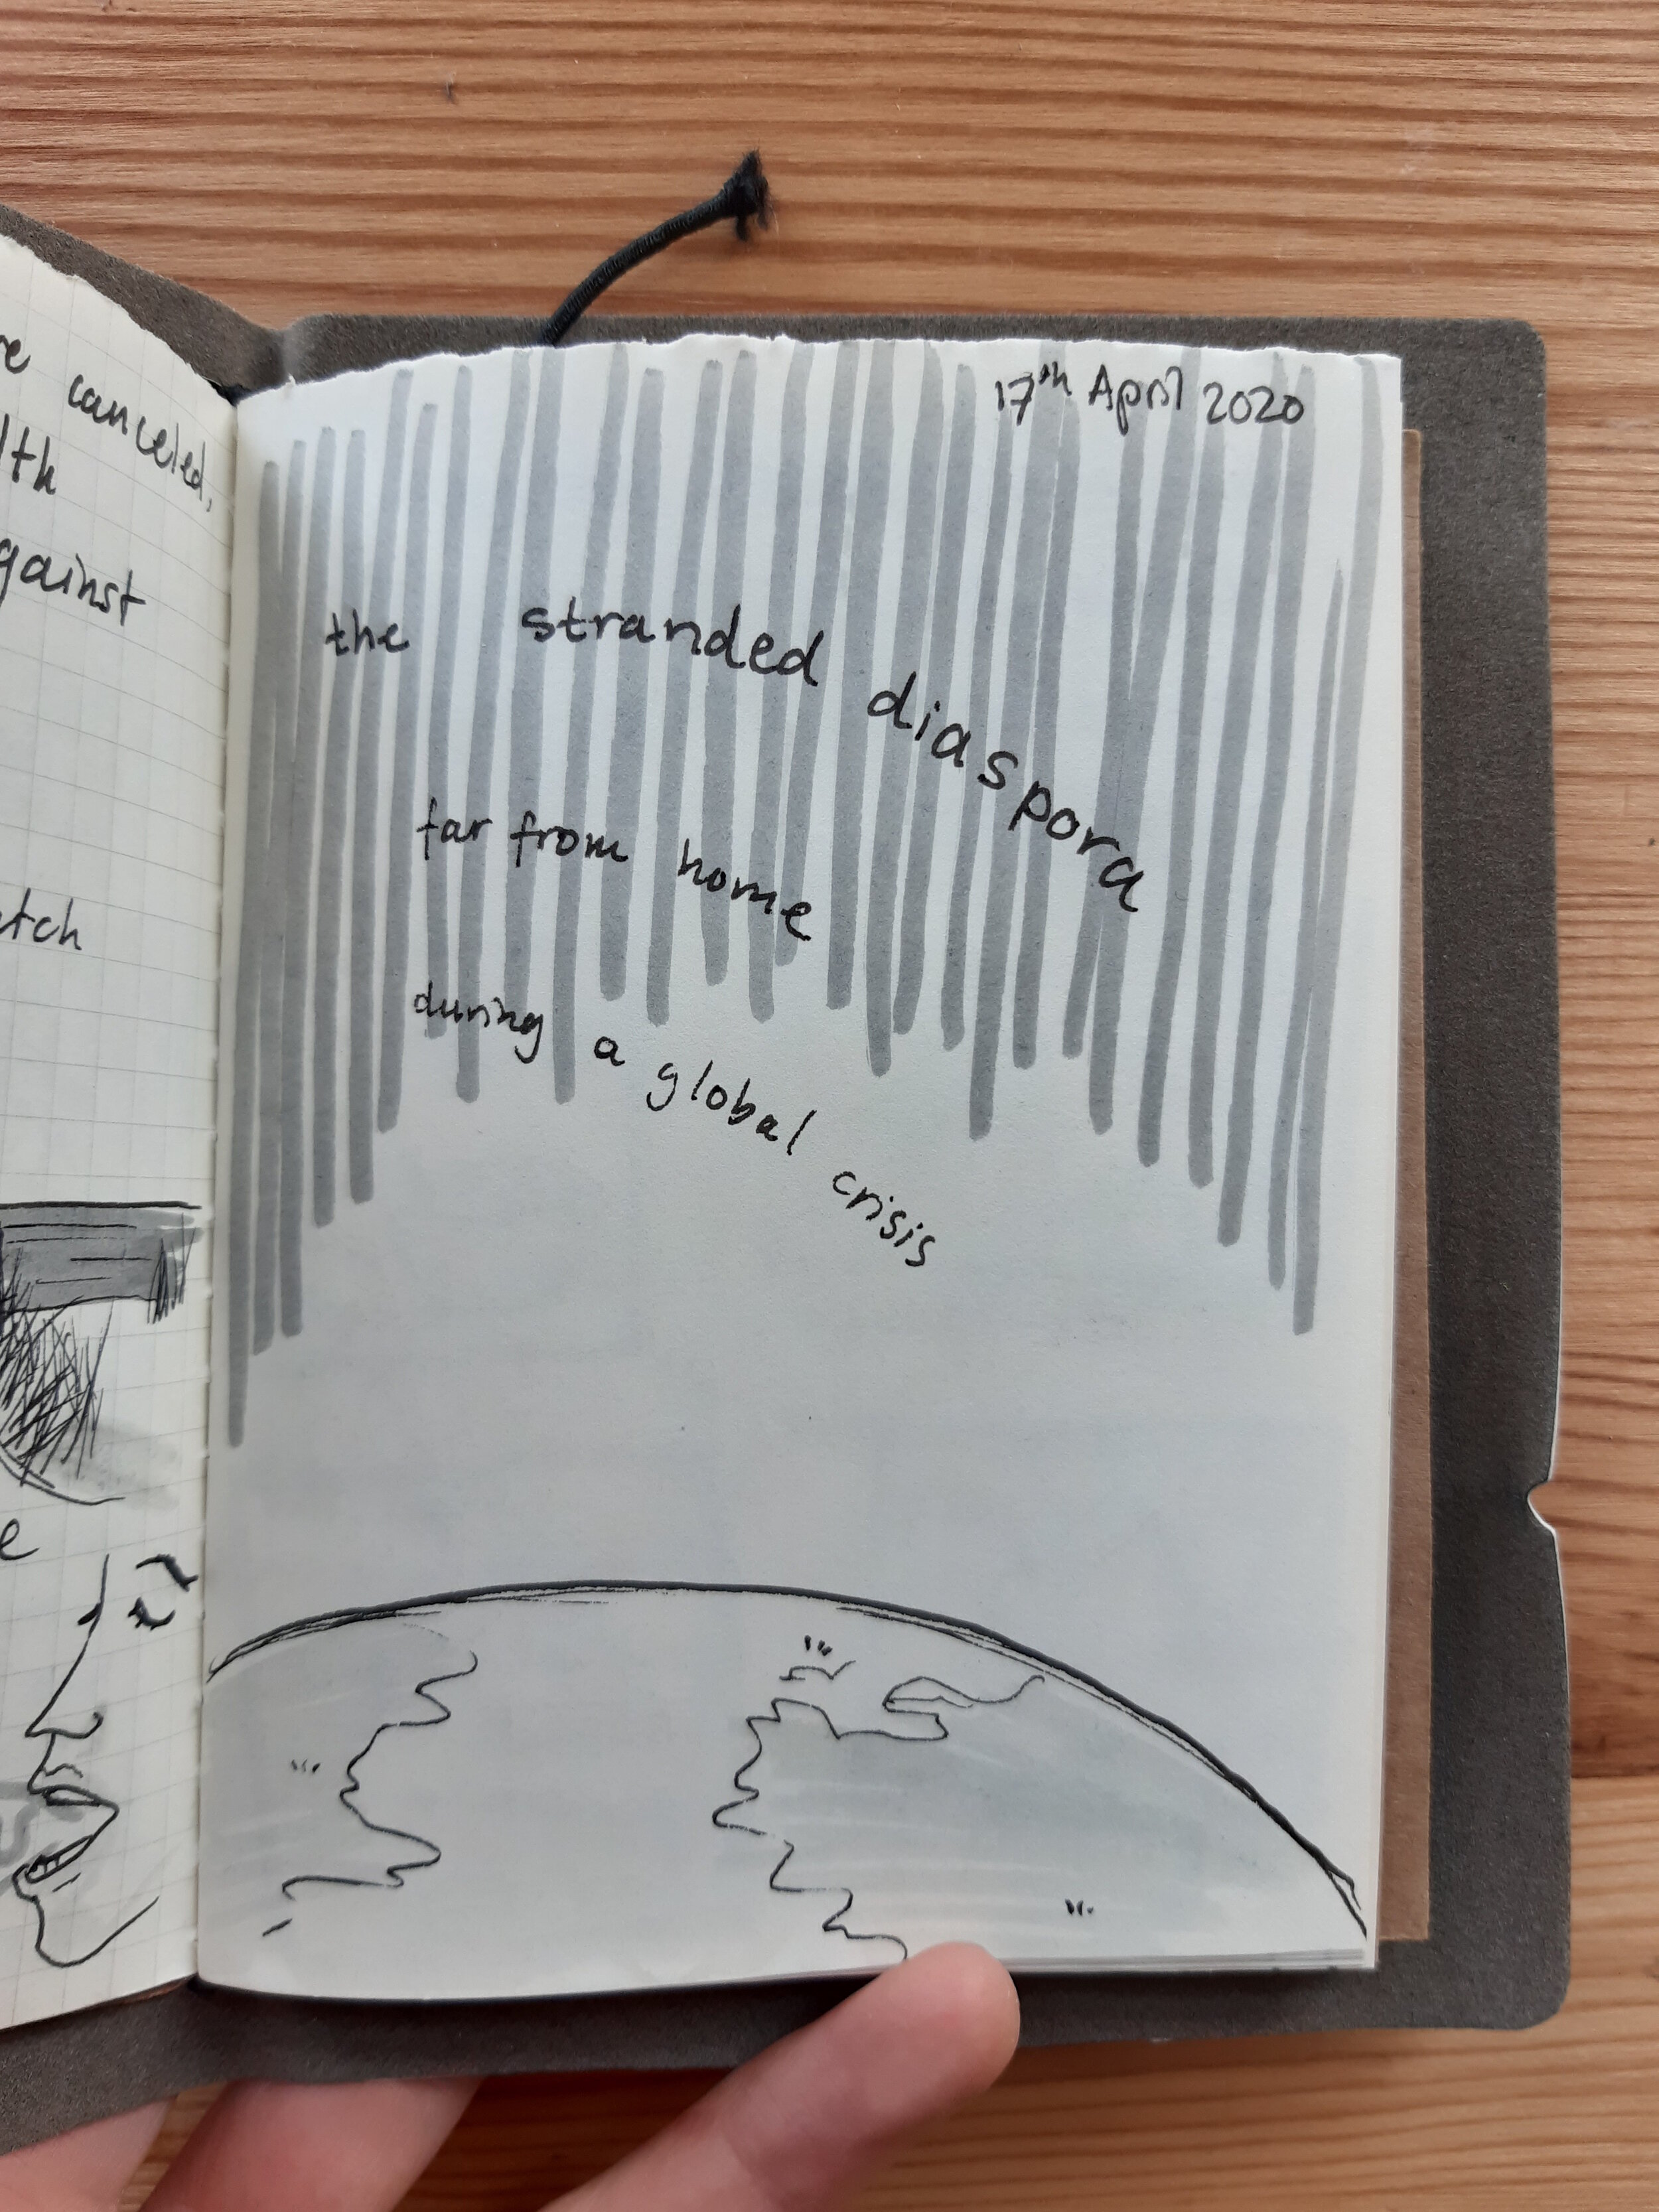 canceled,
17th April 2020
the stranded diaspora
far from home
during a global crisis